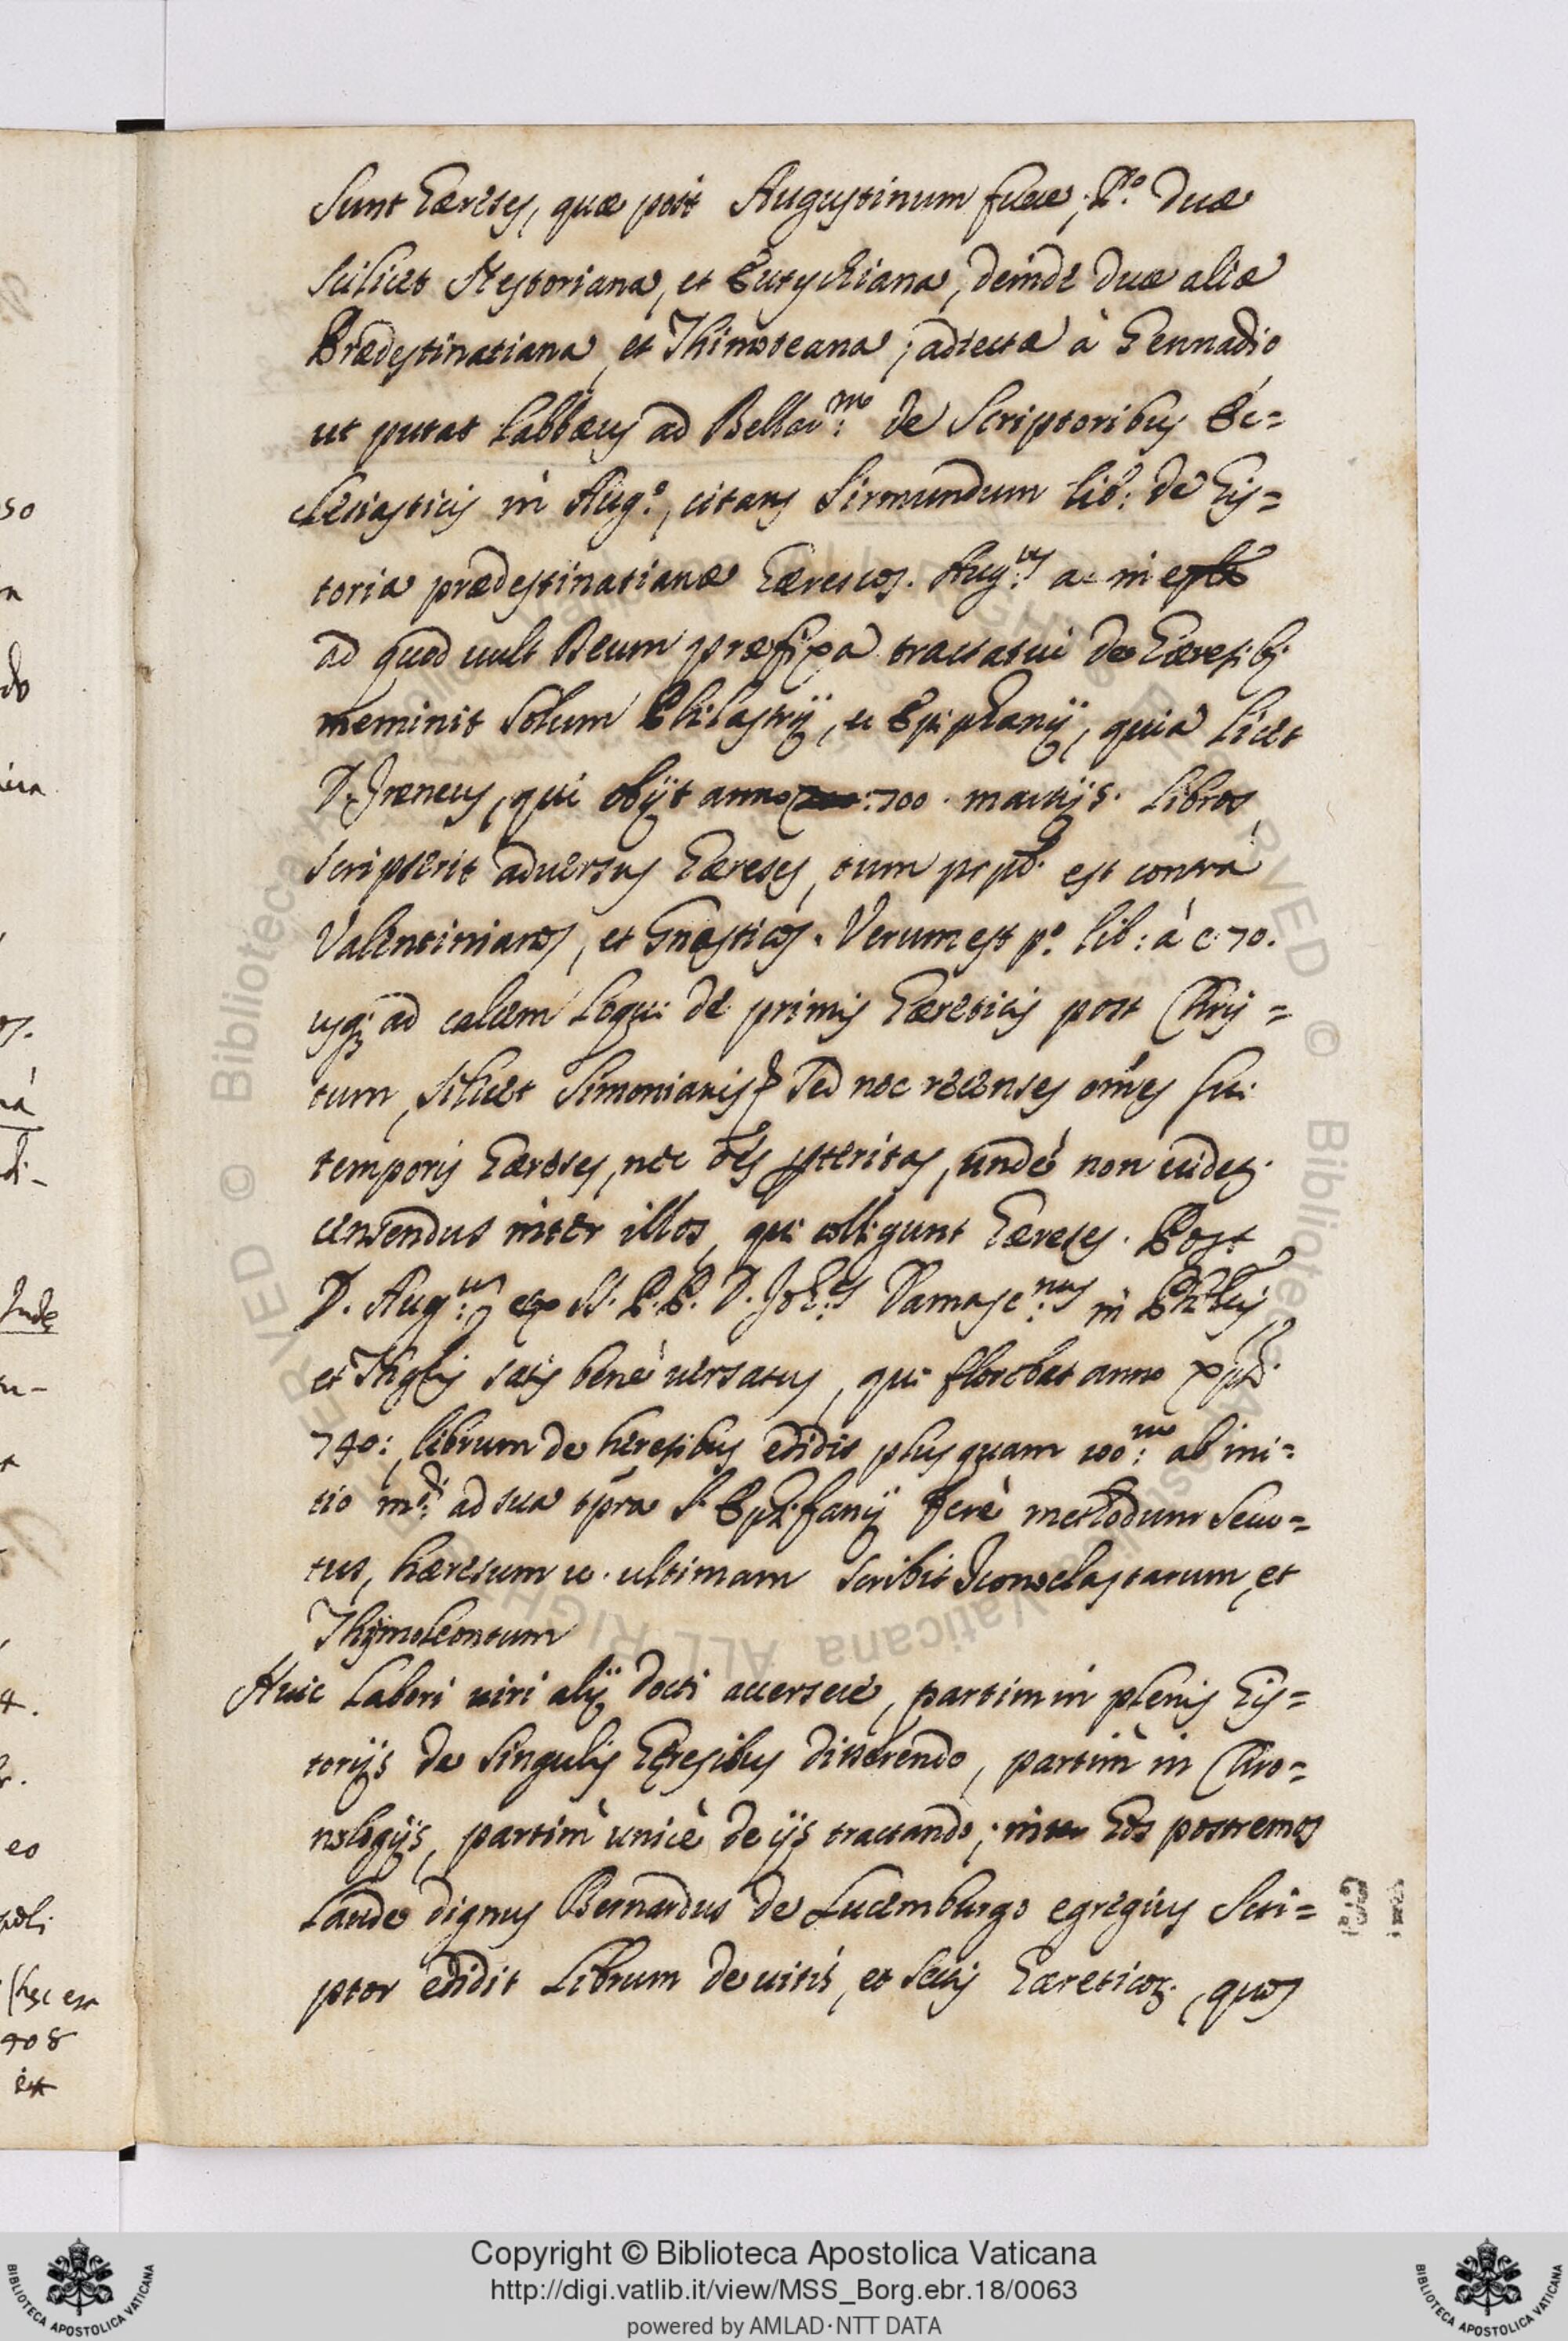 Sunt Hæreses, quæ post Augustinum fuere, P.º duæ
scilicet Nestoriana, et Eutychiana, deinde duæ aliæ
Prædestinatiana, et Thimoteana, adiectæ à Gennadio,
ut putat Labbæus ad Bellar:mo de Scriptoribus Ec=
clesiasticis in Aug.º, citans Sirmundum lib: de His=
toria prædestinatianæ Hæreseos. Aug:us in
ad quod uult Deum præfixa tractatui de Hæresibꝫ
meminit solum Philastrij, et Epiphanij, quia licet
D. Iræneus, qui obijt anno 200. martijs. libros
scripserit aduersus Hæreses, tum est contrà
Valentinianos, et Gnosticos. Verum est p.º lib: à c: 20.
usqꝫ ad calcem loqui de primis Hæreticis post Chris=
tum, scilicet Simonianis, sed nec recenses om̃es sui
temporis Hæreses, nec õẽs p̱teritas, undè non uidetꝫ
censendus inter illos, qui colligunt Hæreses. Post
D. Aug:um ex SS. P.P. D. Joh:es Damasc:nus in
et satis benè uersatus, qui florebat anno
740: librum de heresibus edidit plusquam 100:m ab ini=
tio m̃di ad sua tp̃ra S. Ephifanij ferè methodum secu=
tus, hæresum u. ultimam scribit Iconoclastarum, et
Thijmoleontum
Huic labori uiri alij docti accersere, partim in plenis His=
torijs de singulis Hęresibus disserendo, partim in Chro=
nologijs, partim unicè de ijs tractando; inter Hos postremos
laude dignus Bernardus de Lucemburgo egregius Scri=
ptor edidit Librum de uitis, et sectis Hæreticoꝝ, quos
Copyright © Biblioteca Apostolica Vaticana
http://digi.vatlib.it/view/MSS_Borg.ebr.18/0063
powered by AMLAD·NTT DATA